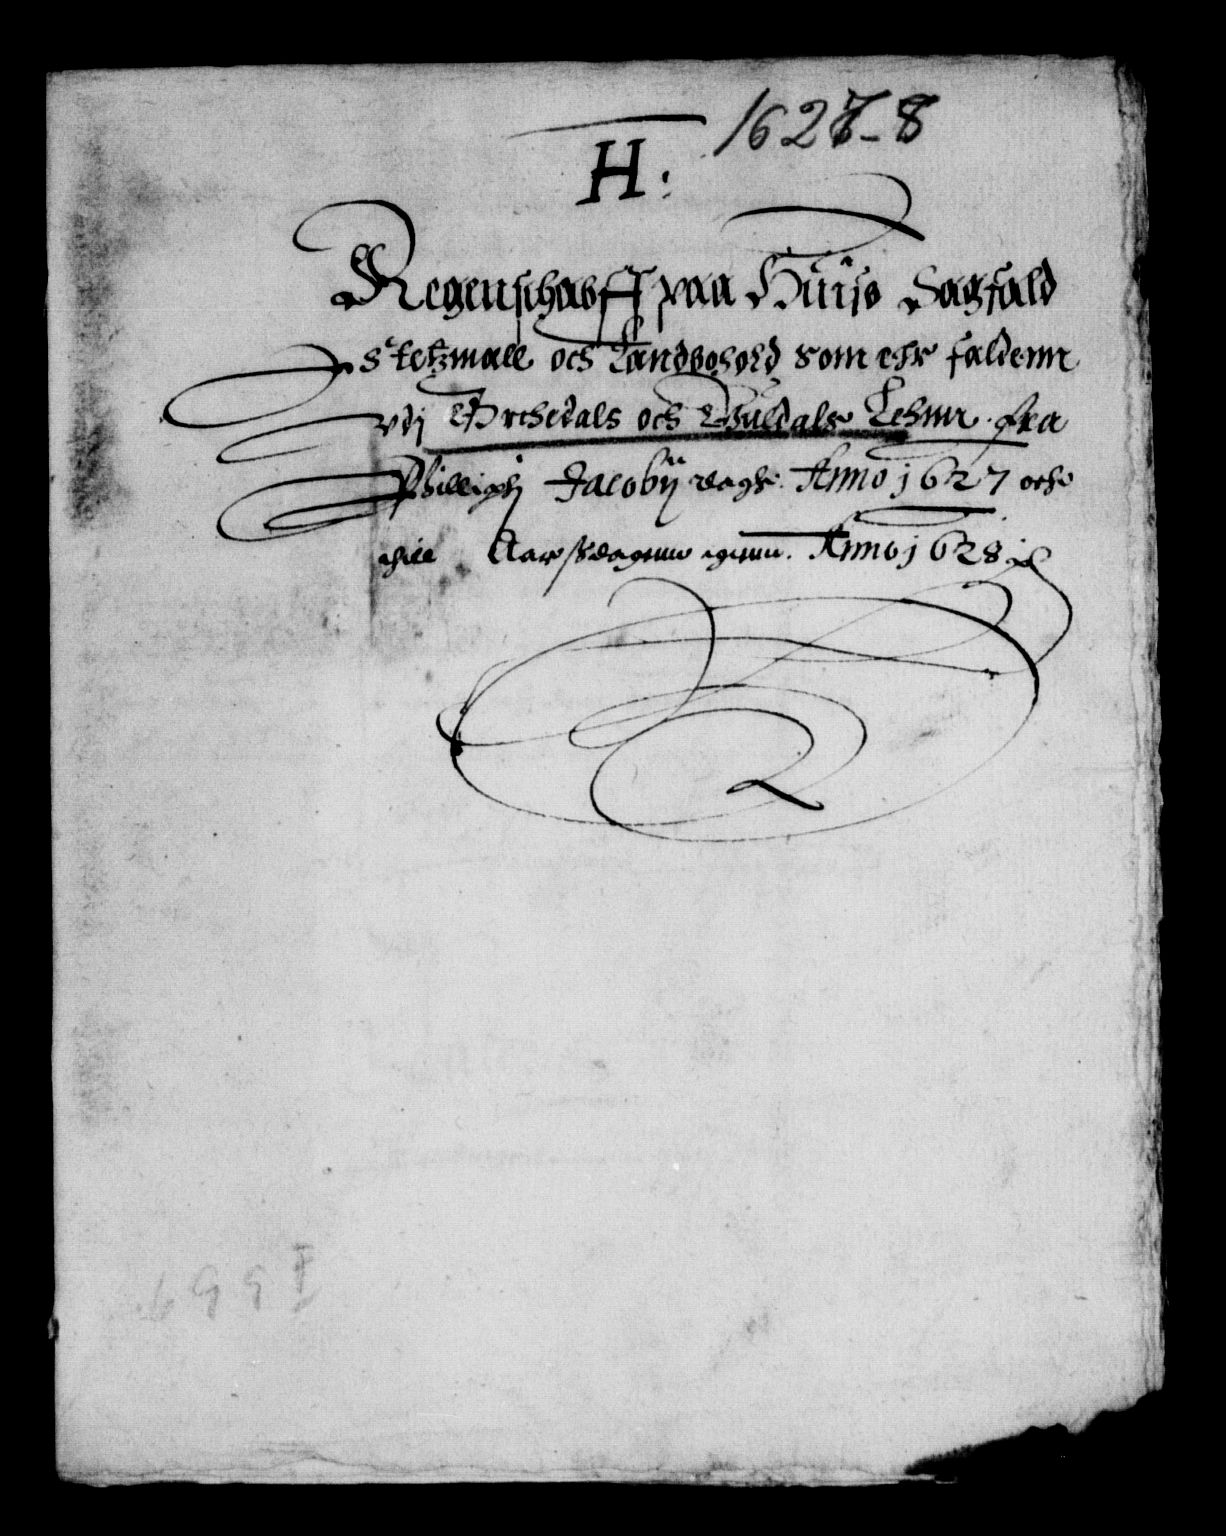 1627-8
H:
Regenschabff paa Huiss Sagfald
Stetzmall och Landbohold som ehr faldenn
vdj Orchedals och Guldals Lehnn fra
Phillipij Jacobij dagh Anno 1627 och
thill Aarssdagenn igienn. Anno 1628